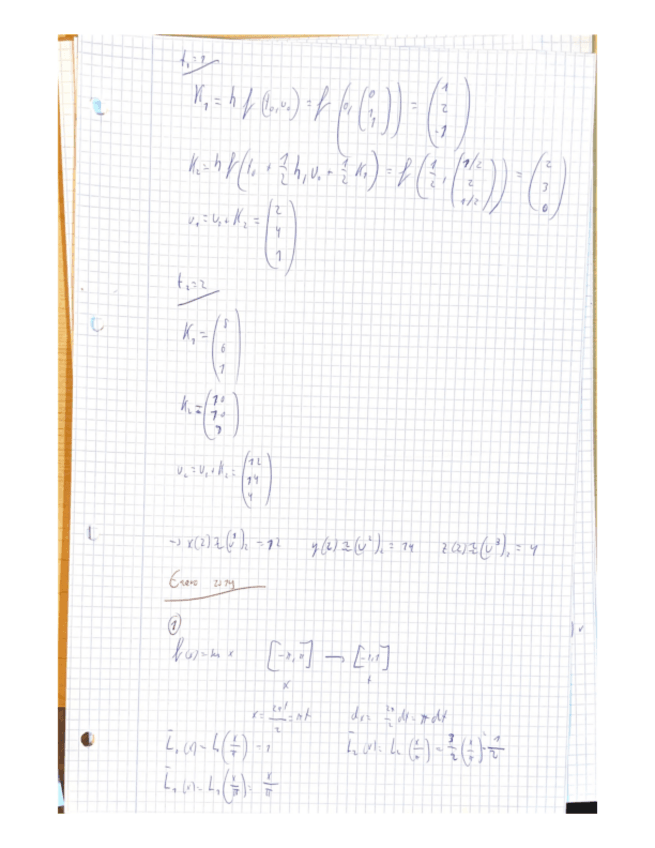 t₁=1
K₁ = h f (t₀, u₀) = f (0, (0 1 1)) = (1 2 -1)
K₂ = h f (t₀ + 1/2 h, u₀ + 1/2 K₁) = f (1/2, (1/2 2 1/2)) = (2 3 0)
u₁ = u₀ + K₂ = (2 4 1)
t₂=2
K₁ = (8 6 1)
K₂ = (10 10 3)
u₂ = u₁ + K₂ = (12 14 4)
→ x(2) ≈ (u¹)₂ = 12 y(2) ≈ (u²)₂ = 14 z(2) ≈ (u³)₂ = 4
①
f(x) = sin x [-π, π] → [-1,1]
x t
x = 2πt/2 = πt dx = 2π/2 dt = π dt
L̄₀(x) = L₀(x/π) = 1 L̄₂(x) = L₂(x/π) = 3/2 (x/π)² - 1/2
L̄₁(x) = L₁(x/π) = x/π